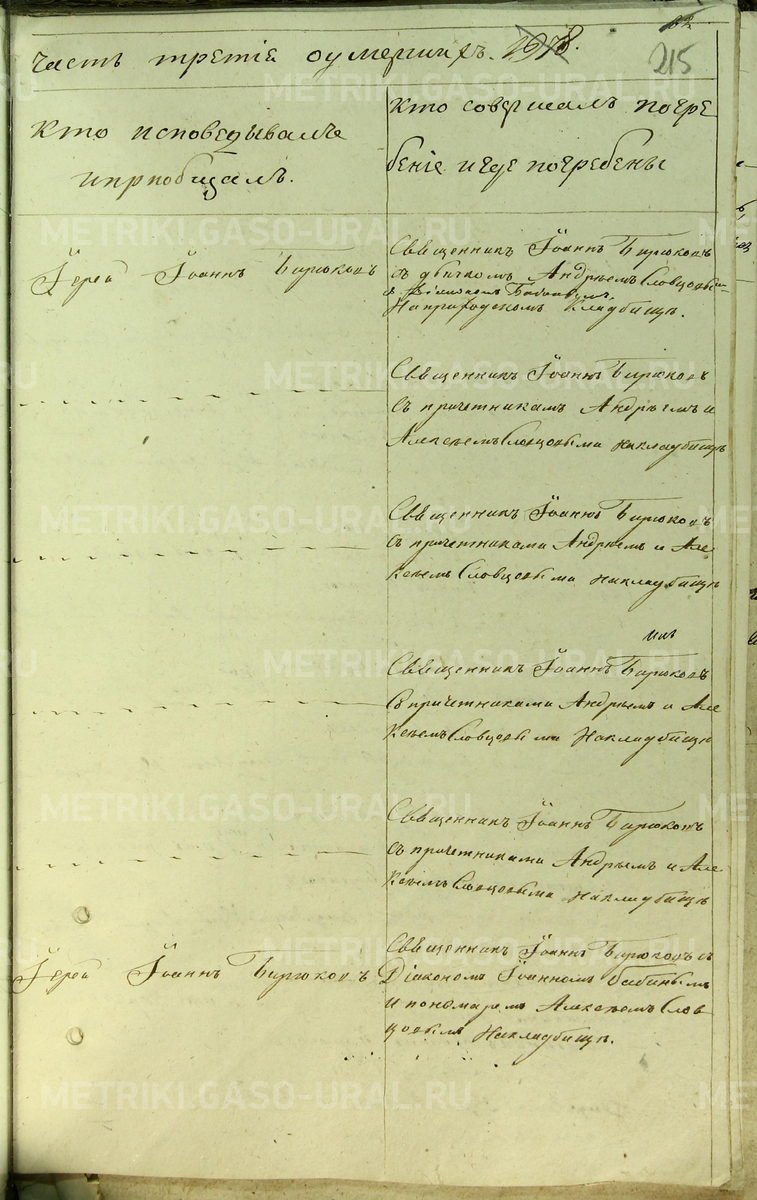 215
Часть третія оумершихъ.
Кто исповедывалъ
и приобщалъ.
Кто совершалъ погре
беніе и где погребены
Іерей Іоаннъ Бирюковъ
Священникъ Іоаннъ Бирюковъ
съ дьячкомъ Андрѣемъ Словцовымъ
На приходскомъ Кладбищѣ.
Священникъ Іоаннъ Бирюковъ
съ причетникамъ Андрѣемъ и
Алексѣемъ Словцовыма на кладбищѣ
Священникъ Іоаннъ Бирюковъ
съ причетниками Андрѣемъ и Але
ксѣемъ Словцовыма на кладбищѣ
Священникъ Іоаннъ Бирюковъ
Съ причетниками Андрѣемъ и Але
ксѣемъ Словцовыма На кладбищѣ
Священникъ Іоаннъ Бирюковъ
съ причетниками Андрѣемъ и Але
ксѣемъ Словцовыма На кладбищѣ
Іерей Іоаннъ Бирюковъ
Священникъ Іоаннъ Бирюковъ съ
Діакономъ Іоанномъ Бабинымъ
и пономаремъ Алексѣемъ Слов
цовымъ На кладбищѣ.
METRIKI.GASO-URAL.RU